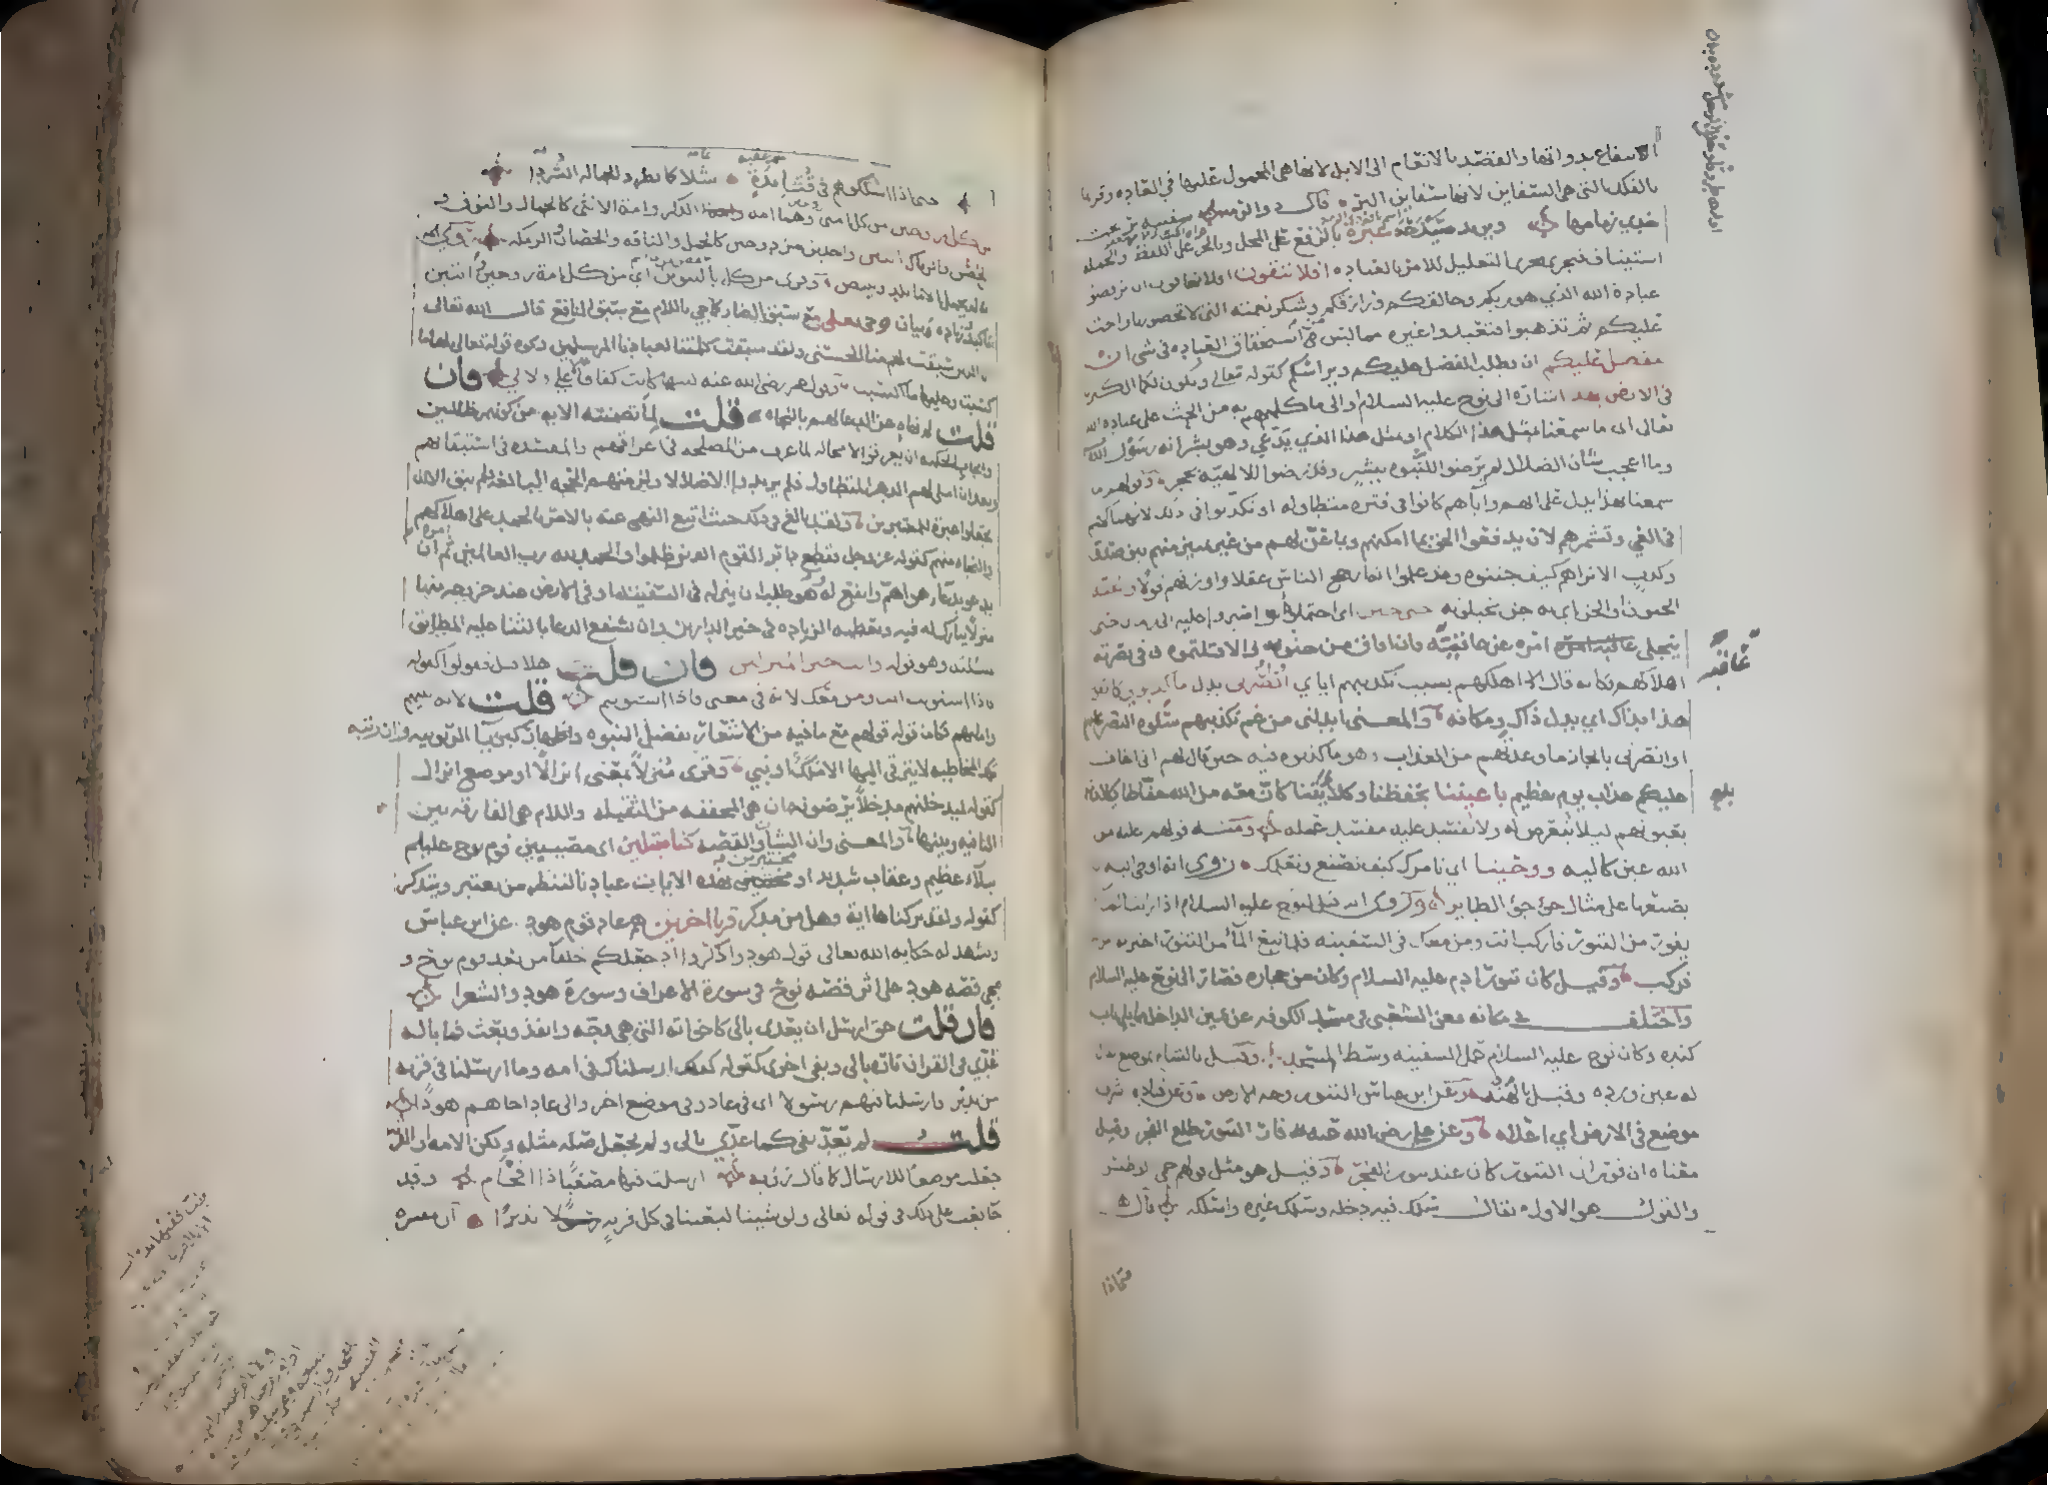 الانتفاع بذواتها والقصد بالانعام الى الابل لانها هي المحمول عليها في العاده وقرنها
بالفلك التي هي السفاين لانها سفاين البر قال ذو الرمه سفينه بر تحت
خدي زمامها يريد صيدحه غيره بالرفع على المحل وبالجر على اللفظ والجمله
استيناف تجري مجرى التعليل للامر بالعباده افلا تتقون افلا تخافون ان ترفضوا
عبادة الله الذي هو ربكم وخالقكم ورازقكم وشكر نعمته التي لا تحصونها واجب
عليكم ثم تذهبوا فتعبدوا غيره مما ليس من استحقاق العباده في شي ان
يتفضل عليكم ان يطلب الفضل عليكم ويراسكم كقوله تعالى وتكون لكما الكبريا
في الارض بهذا اشارة الى نوح عليه السلام او الى ما كلمهم به من الحث على عباده الله
تعالى اي ما سمعنا بمثل هذا الكلام او بمثل هذا الذي يدعي وهو بشر انه رسول الله
وما اعجب شان الضلال لم يرضوا للنبوه ببشر وقد رضوا للالهيه بحجر وقولهم ما
سمعنا بهذا يدل على انهم واباهم كانوا في فتره متطاوله او تكذبوا في ذلك لانهماكهم
في الغي وتشمرهم لان يدفعوا الحق بما امكنهم وبما عن لهم من غير تمييز منهم بين صدق
وكذب الا تراهم كيف جننوه وقد علموا انه ارجح الناس عقلا واوزنهم قولا والجنه
الجنون او الجن اي به جن يخبلونه حتى حين اي احتملوه واصبروا عليه الى زمان حتى
ينجلي امره عن عاقبة فان افاق من جنونه والا قتلتموه في نصرته
اهلاكهم فكانه قال اهلكهم بسبب تكذيبهم اياي انصرني بدل ما كذبوني كما تقول
هذا بذاك اي بدل ذاك ومكانه والمعنى ابدلني من غم تكذيبهم سلوة النصر عليهم
او انصرني بانجاز ما وعدتهم من العذاب وهو ما كذبوه فيه حين قال لهم اني اخاف
عليكم عذاب يوم عظيم باعيننا بحفظنا وكلائتنا كان معه من الله حفاظا يكلؤنه
بعيونهم ليلا يتعرض له ولا يفسد عليه مفسد عمله ومنه قولهم عليه من
الله عين كاليه ووحينا اي نامرك كيف تصنع ونعلمك روي انه اوحي اليه
يصنعها على مثال جؤجؤ الطاير وروي انه قيل لنوح عليه السلام اذا رايت الما
يفور من التنور فاركب انت ومن معك في السفينه فلما نبع الما من التنور اخبرته امراته
فركب وقيل كان تنور ادم عليه السلام وكان من حجاره فصار الى نوح عليه السلام
واختلف في مكانه فعن الشعبي في مسجد الكوفه عن يمين الداخل مما يلي باب
كنده وكان نوح عليه السلام عمل السفينه وسط المسجد وقيل بالشام بموضع يقال
له عين ورده وقيل بالهند وعن ابن عباس التنور وجه الارض وعن قتاده اشرف
موضع في الارض اي اعلاه وعن علي رضي الله عنه فار التنور طلع الفجر وقيل
معناه ان فوران التنور كان عند تنوير الفجر وقيل هو مثل قولهم حمي الوطيس
والقول هو الاول يقال سلك فيه دخله وسلك غيره واسلكه قال
حتى اذا
عاقبة
بلغ
حتى اذا اسلكوهم في قتايدة شلا كما تطرد الجمالة الشردا
من كل زوجين من كل امتي زوجين وهما امة الذكر وامة الانثى كالجمال والنوق و
الحصن والرماك اثنين واحدين مزدوجين كالجمل والناقه والحصان والرمكه روي انه
لم يحمل الا ما يلد ويبيض وقري من كل بالتنوين اي من كل امة زوجين واثنين
تاكيد وزياده بيان جي بعلى مع سبق الضار كما جي باللام مع سبق النافع قال الله تعالى
ان الذين سبقت لهم منا الحسنى ولقد سبقت كلمتنا لعبادنا المرسلين ونحوه قوله تعالى لها ما
كسبت وعليها ما اكتسبت وقول عمر رضي الله عنه ليتها كانت كفافا لا علي ولا لي فان
قلت لم نهاه عن الدعا لهم بالنجاه قلت لما تضمنته الايه من كونهم ظالمين
وايجاب الحكمه ان يغرقوا لا محاله لما عرف من المصلحه في اغراقهم والمفسده في استبقائهم
وبعد ان املي لهم الدهر المتطاول فلم يزيدوا الا ضلالا ولزمتهم الحجه البالغه لم يبق الا ان
يجعلوا عبرة للمعتبرين ولقد بالغ في ذلك حيث اتبع النهي عنه بالامر بالحمد على اهلاكهم
والنجاه منهم كقوله عز وجل فقطع دابر القوم الذين ظلموا والحمد لله رب العالمين ثم امره ان
يدعوه بدعاء هو اهم وانفع له وهو طلب ان ينزله في السفينه او في الارض عند خروجه منها
منزلا يبارك له فيه ويعطيه الزياده في خير الدارين وان يشفع الدعا بالثنا عليه المطابق
لمسئلته وهو قوله وانت خير المنزلين فان قلت هلا قيل فقولوا لقوله
فاذا استويت انت ومن معك لانه في معنى فاذا استويتم قلت لانه نبيهم
وامامهم فكان قوله قولهم مع ما فيه من الاشعار بفضل النبوه واظهار كبريا الربوبيه وان رتبه
تلك المخاطبه لا يترقى اليها الا ملك او نبي وقري منزلا بمعنى انزالا او موضع انزال
كقوله ليدخلنهم مدخلا يرضونه ان هي المخففه من الثقيله واللام هي الفارقه بين
النافيه وبينها والمعنى وان الشان والقصه كنا مبتلين اي مصيبين قوم نوح عليهم
ببلاء عظيم وعقاب شديد او مختبرين بهذه الايات عبادنا لننظر من يعتبر ويتذكر
كقوله ولقد تركناها اية فهل من مدكر قرنا اخرين هم عاد قوم هود عن ابن عباس
ويشهد له حكايه الله تعالى قول هود واذكروا اذ جعلكم خلفا من بعد قوم نوح و
مجي قصه هود على اثر قصه نوح في سورة الاعراف وسورة هود والشعرا
فان قلت حق ارسل ان يعدى بالى كاخواته التي هي وجه وانفذ وبعث فما باله
عدي في القران تاره بالى وبفي اخرى كقوله كذلك ارسلناك في امه وما ارسلنا في قريه
من نذير فارسلنا فيهم رسولا اي في عاد وفي موضع اخر والى عاد اخاهم هودا
قلت لم يعد بفي كما عدي بالى ولم يجعل صله مثله ولكن الامه او القريه
جعلت موضعا للارسال كما قال رؤبه ارسلت فيها مصعبا ذا اقحام وقد
جا بعث على ذلك في قوله تعالى ولو شينا لبعثنا في كل قرية نذيرا ان مفسره